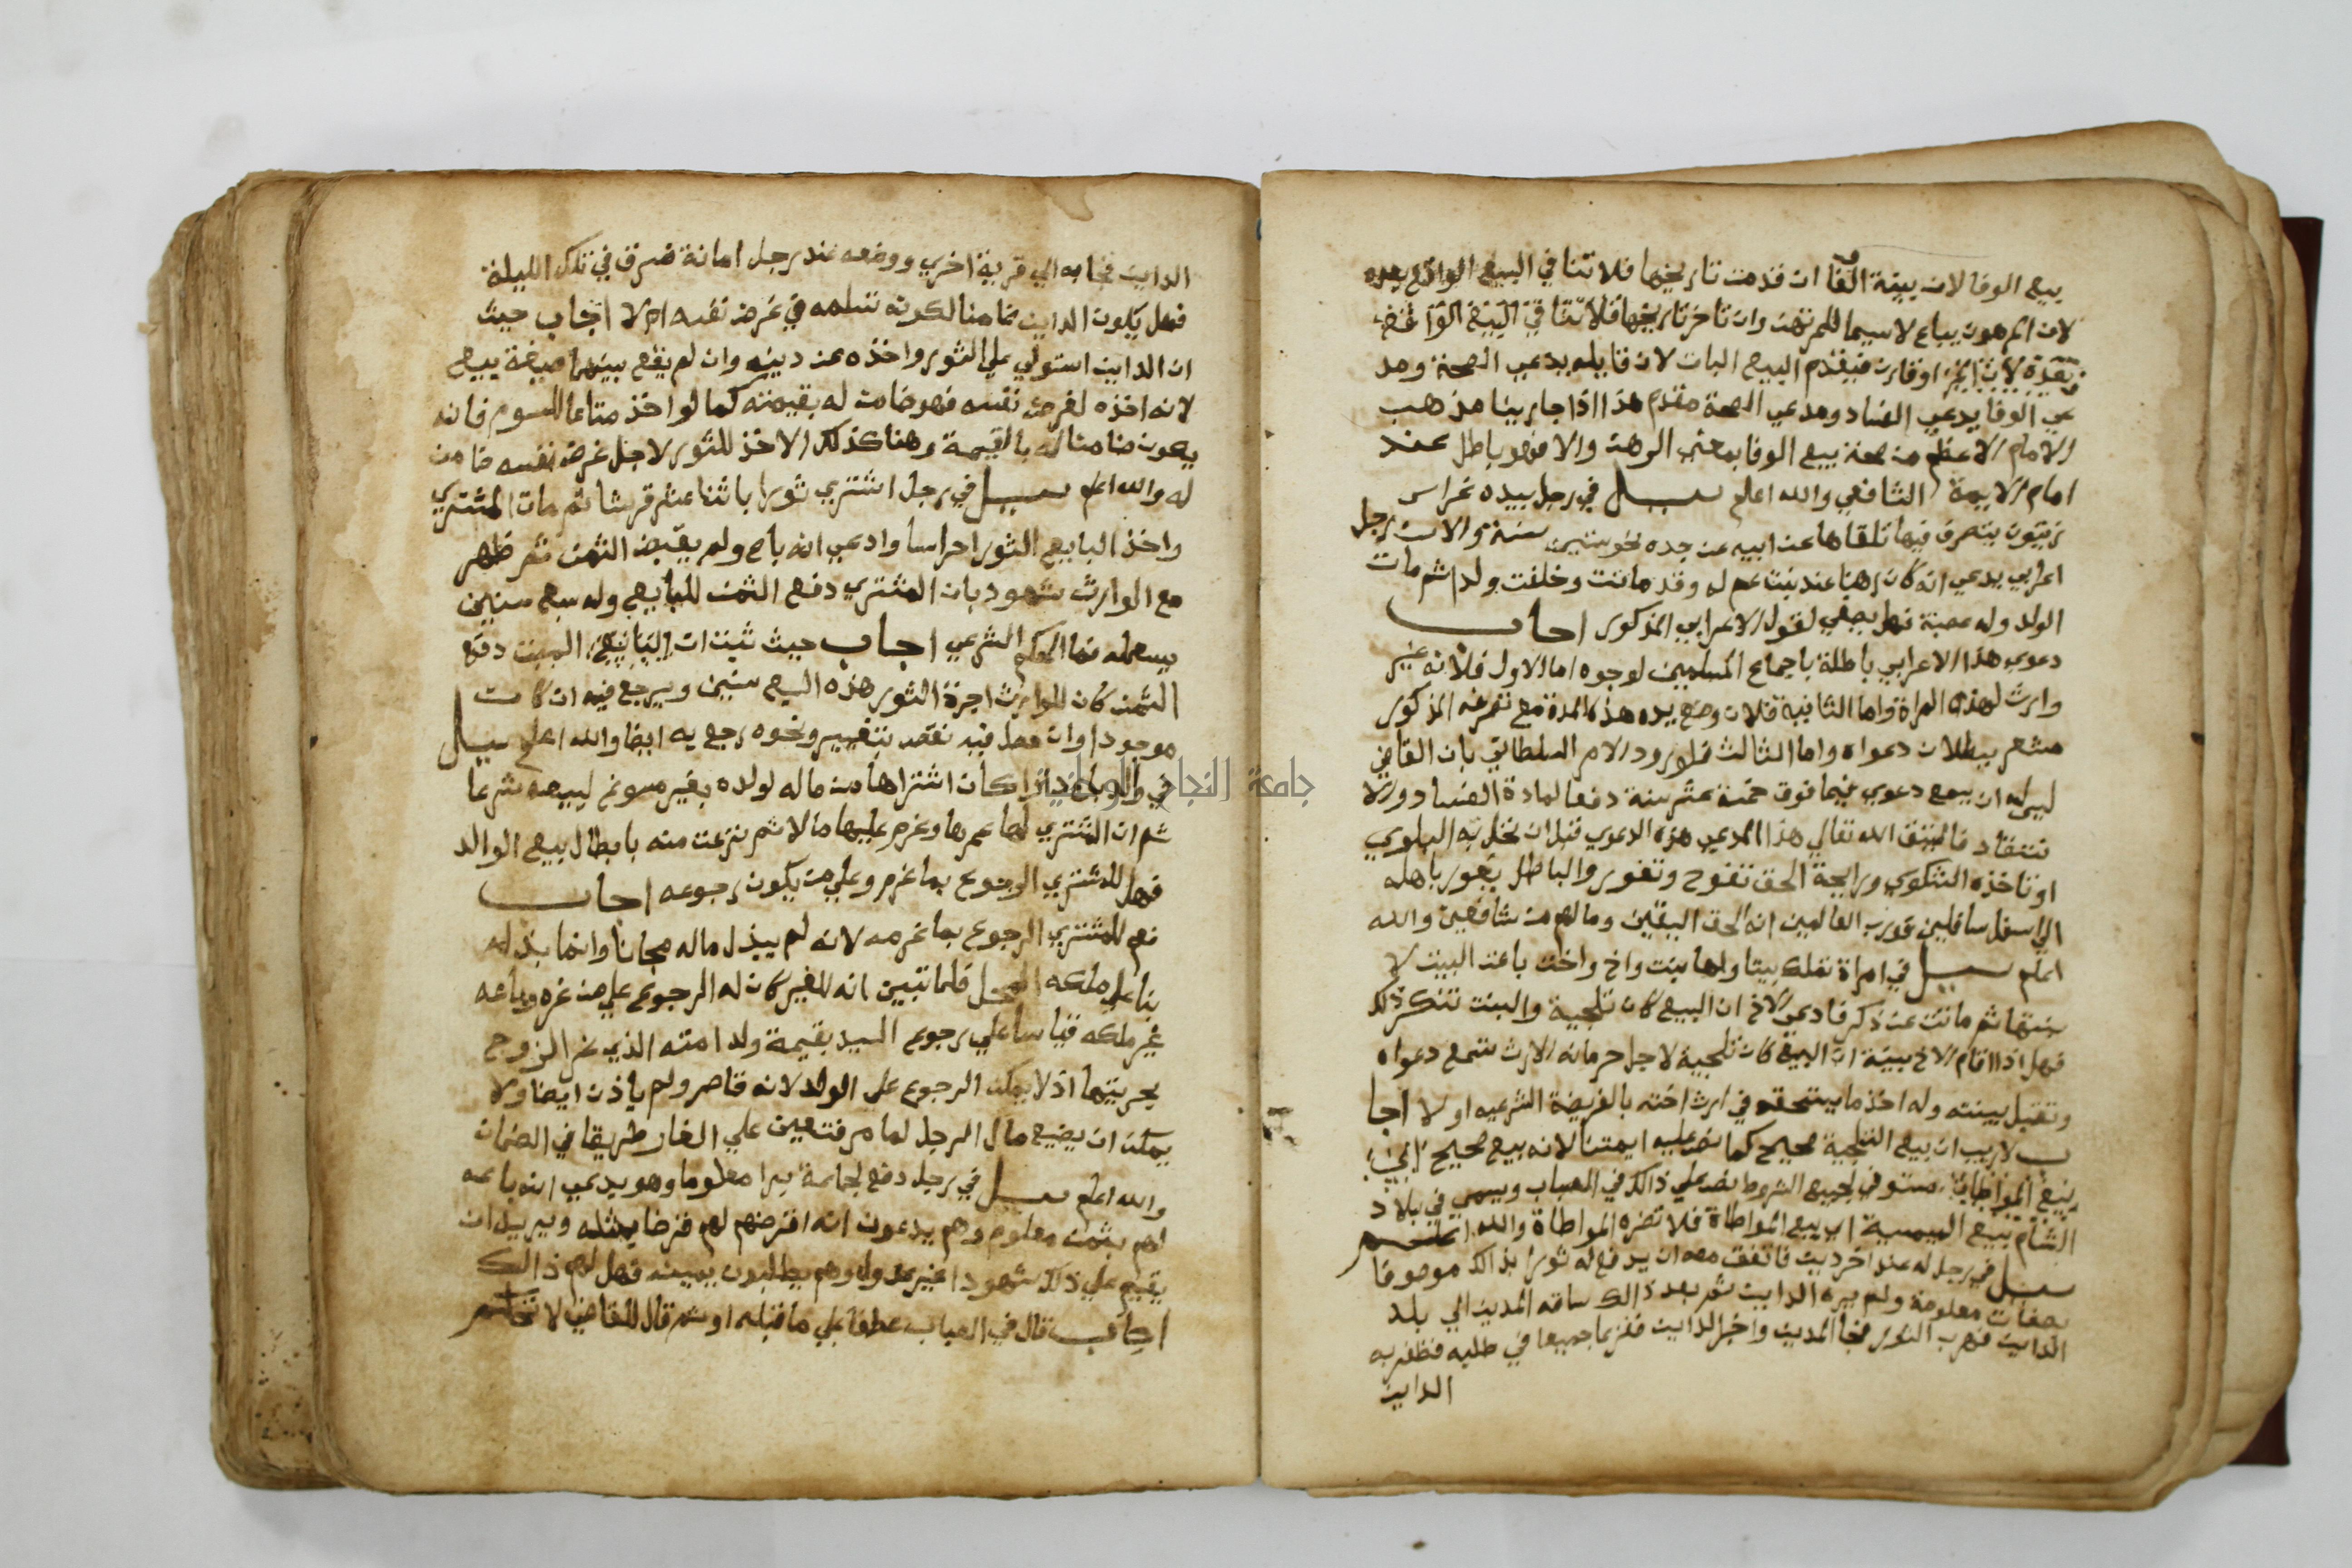 بيع الوفا لان بينة الوفا ان قدمت تاريخها فلا تنافي البيع الواقع بعده
لان المرهون يباع لا سيما للمرتهن وان تاخر تاريخها فلا تنافي
فيقدم البيع البات لان قايله يدعي الصحة ومد
عي الوفا يدعي الفساد ومدعي الصحة مقدم هذا اذا جارينا مذهب
الامام الاعظم من صحة بيع الوفا بمعني الرهن والا فهو باطل عند
امام الايمة الشافعي والله اعلم سيل في رجل بيده غراس
زيتون يتصرف فيها تلقاها عن ابيه عن جده نحو ستين سنة والان رجل
اعرابي يدعي انه كان رهنا عند بنت عم له وقد ماتت وخلفت ولدا ثم مات
الولد وله عصبة فهل يصغي لقول الاعرابي المذكور اجاب
دعوي هذا الاعرابي باطلة باجماع المسلمين لوجوه اما الاول فلانه غير
وارث لهذه المراة واما الثانية فلان وضع يده هذه المدة مع تصرفه المذكور
مشعر ببطلان دعواه واما الثالث فلورود الامر السلطاني بان القاضي
ليس له ان يسمع دعوي فيما فوق خمسة عشر سنة دفعا لمادة الفساد ولا
تنتقاد فاليتق الله تعالي هذا المدعي هذه الدعوي قبل ان تحل به البلوي
او تاخذه الشكوي ورايحة الحق تفوح وتفور والباطل يغور باهله
الي اسفل سافلين فورب العالمين انه لحق اليقين وما لهم من شافعين والله
اعلم سيل في امراة تملك بيتا ولها بنت واخ واخت باعت البيت لا
بنتها ثم ماتت عن ذكر فادعي الاخ ان البيع كان تلجية والبنت تنكر ذلك
فهل اذا اقام الاخ بينة ان البيع كان تلجية لاجل حرمانه الارث تسمع دعواه
وتقبل بينته وله اخذ ما يستحقه في ارث اخته بالفريضة الشرعيه او لا اجا
ب لا ريب ان بيع التلجية صحيح كما نص عليه ايمتنا لانه بيع صحيح
مستوفي لجميع الشروط نص علي ذالك في العباب ويسمي في بلاد
الشام بيع البيسية اي بيع المواطاة فلا تضره المواطاة والله اعلم
سيل في رجل له عند اخر دين فاتفق معه ان يدفع له ثورا بذالك موصوفا
بصفات معلومة ولم يره الداين ثم بعد ذالك ساقه المدين الي بلد
الداين فهرب الثور فجا المدين واخبر الداين فخرجا جميعا في طلبه فظفر به
الداين
الداين فجا به الي قرية اخري ووضعه عند رجل امانة فسرق في تلك الليلة
فهل يكون الداين ضامنا لكونه تسلمه في غرض نفسه ام لا اجاب حيث
ان الداين استولي علي الثور واخذه عن دينه وان لم يقع بينهما صيغة بيع
لانه اخذه لغرض نفسه فهو ضامن له بقيمته كما لو اخذ متاعا للسوم فانه
يكون ضامنا له بالقيمة وهنا كذلك الاخذ للثور لاجل غرض نفسه ضامن
له والله اعلم سيل في رجل اشتري ثورا باثنا عشر قرشا ثم مات المشتري
واخذ البايع الثور احراسا وادعي انه باع ولم يقبض الثمن ثم ظهر
مع الوارث شهود بان المشتري دفع الثمن للبايع وله سبع سنين
يستعمله فما الحكم الشرعي اجاب حيث ثبت ان المبيت دفع
الثمن كان للوارث اجرة الثور هذه السبع سنين ويرجع فيه ان كان
موجودا وان حصل فيه نقص بتغيير ونحوه رجع به ايضا والله اعلم سيل
في والد باع دارا كان اشتراها من ماله لولده بغير مسوغ لبيعه شرعا
ثم ان المشتري لها عمرها وغرم عليها مالا ثم نزعت منه بابطال بيع الوالد
فهل للمشتري الرجوع بما غرم وعلي من يكون رجوعه اجاب
نعم للمشتري الرجوع بما غرمه لانه لم يبذل ماله مجانا وانما بذله
بنا علي ملكه المحل فلما تبين انه للغير كان له الرجوع علي من غره وباعه
غير ملكه قياسا علي رجوع السيد بقيمة ولد امته الذي غر الزوج
بحريتها اذ لا يمكن الرجوع علي الولد لانه قاصر ولم ياذن ايضا ولا
يمكن ان يضيع مال الرجل لما مر فتعين علي الغار طريقا في الضمان
والله اعلم سيل في رجل دفع لجماعة برا معلوما وهو يدعي انه باعه
لهم بثمن معلوم وهم يدعون انه اقرضهم لهم قرضا بمثله ويريد ان
يقيم علي ذلك شهودا غير عدول وهم يطلبون يمينه فهل لهم ذالك
اجاب قال في العباب عطفا علي ما قبله او ثم قال للقاضي لا تحكم
جامعة النجاح الوطنية